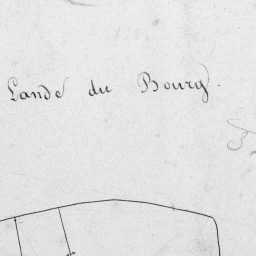 Lande du Bourg.